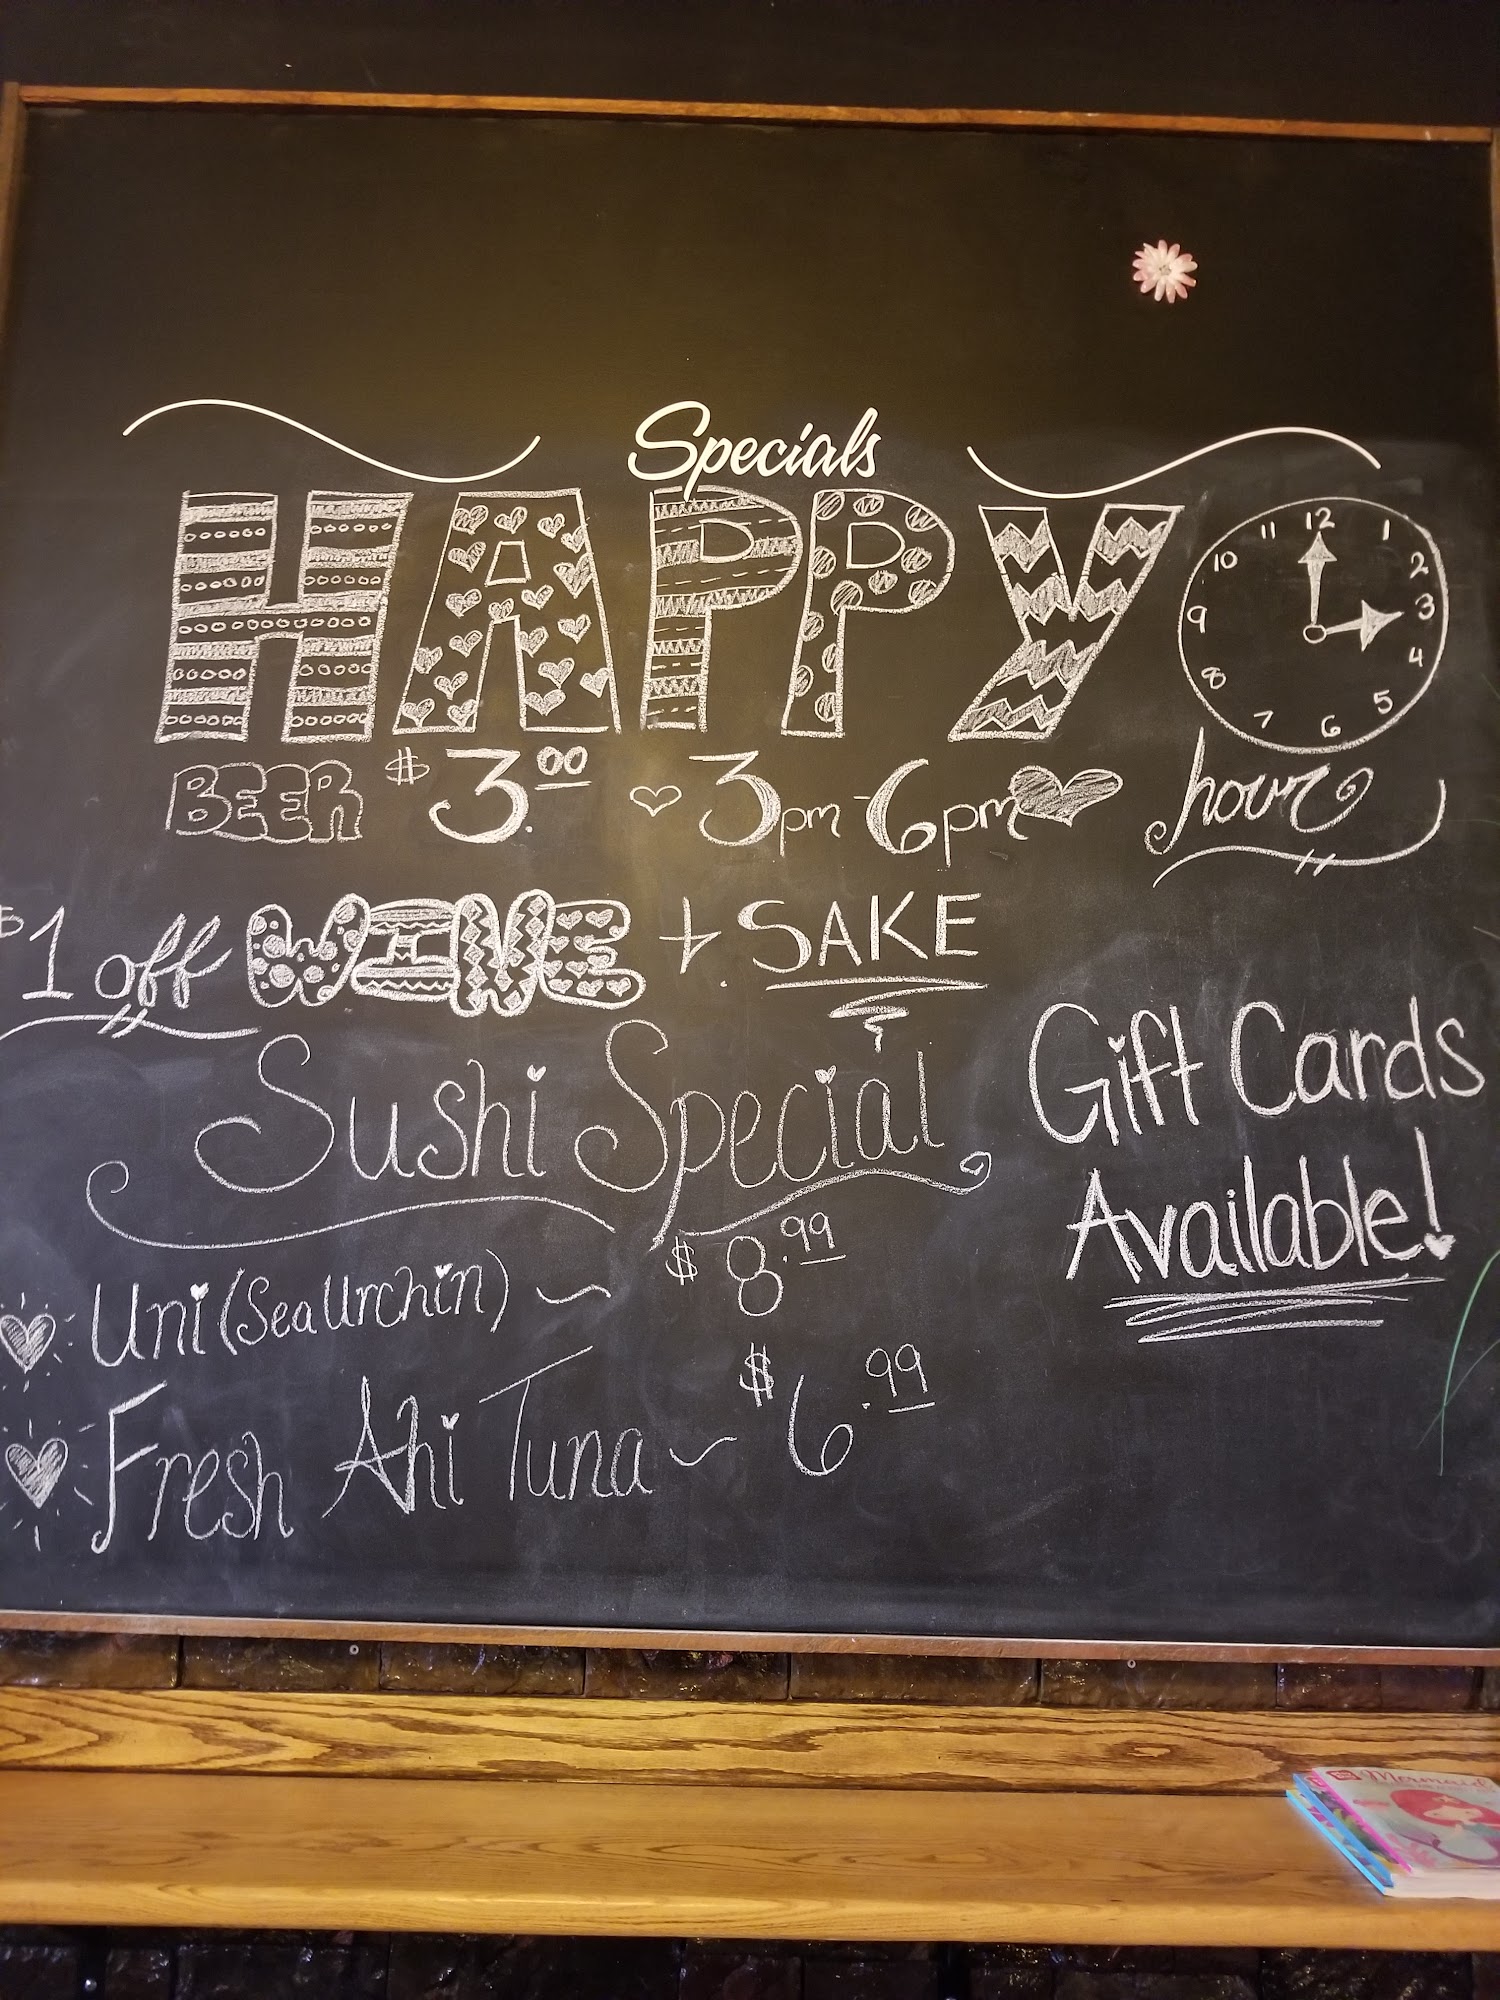 Specials
HAPPY
12
1
2
3
4
5
6
7
8
9
10
11
hour
BEER $3.00 3pm-6pm
$1 off WINE + SAKE
Sushi Special
Uni (Sea Urchin) ~ $8.99
Fresh Ahi Tuna ~ $6.99
Gift Cards
Available!